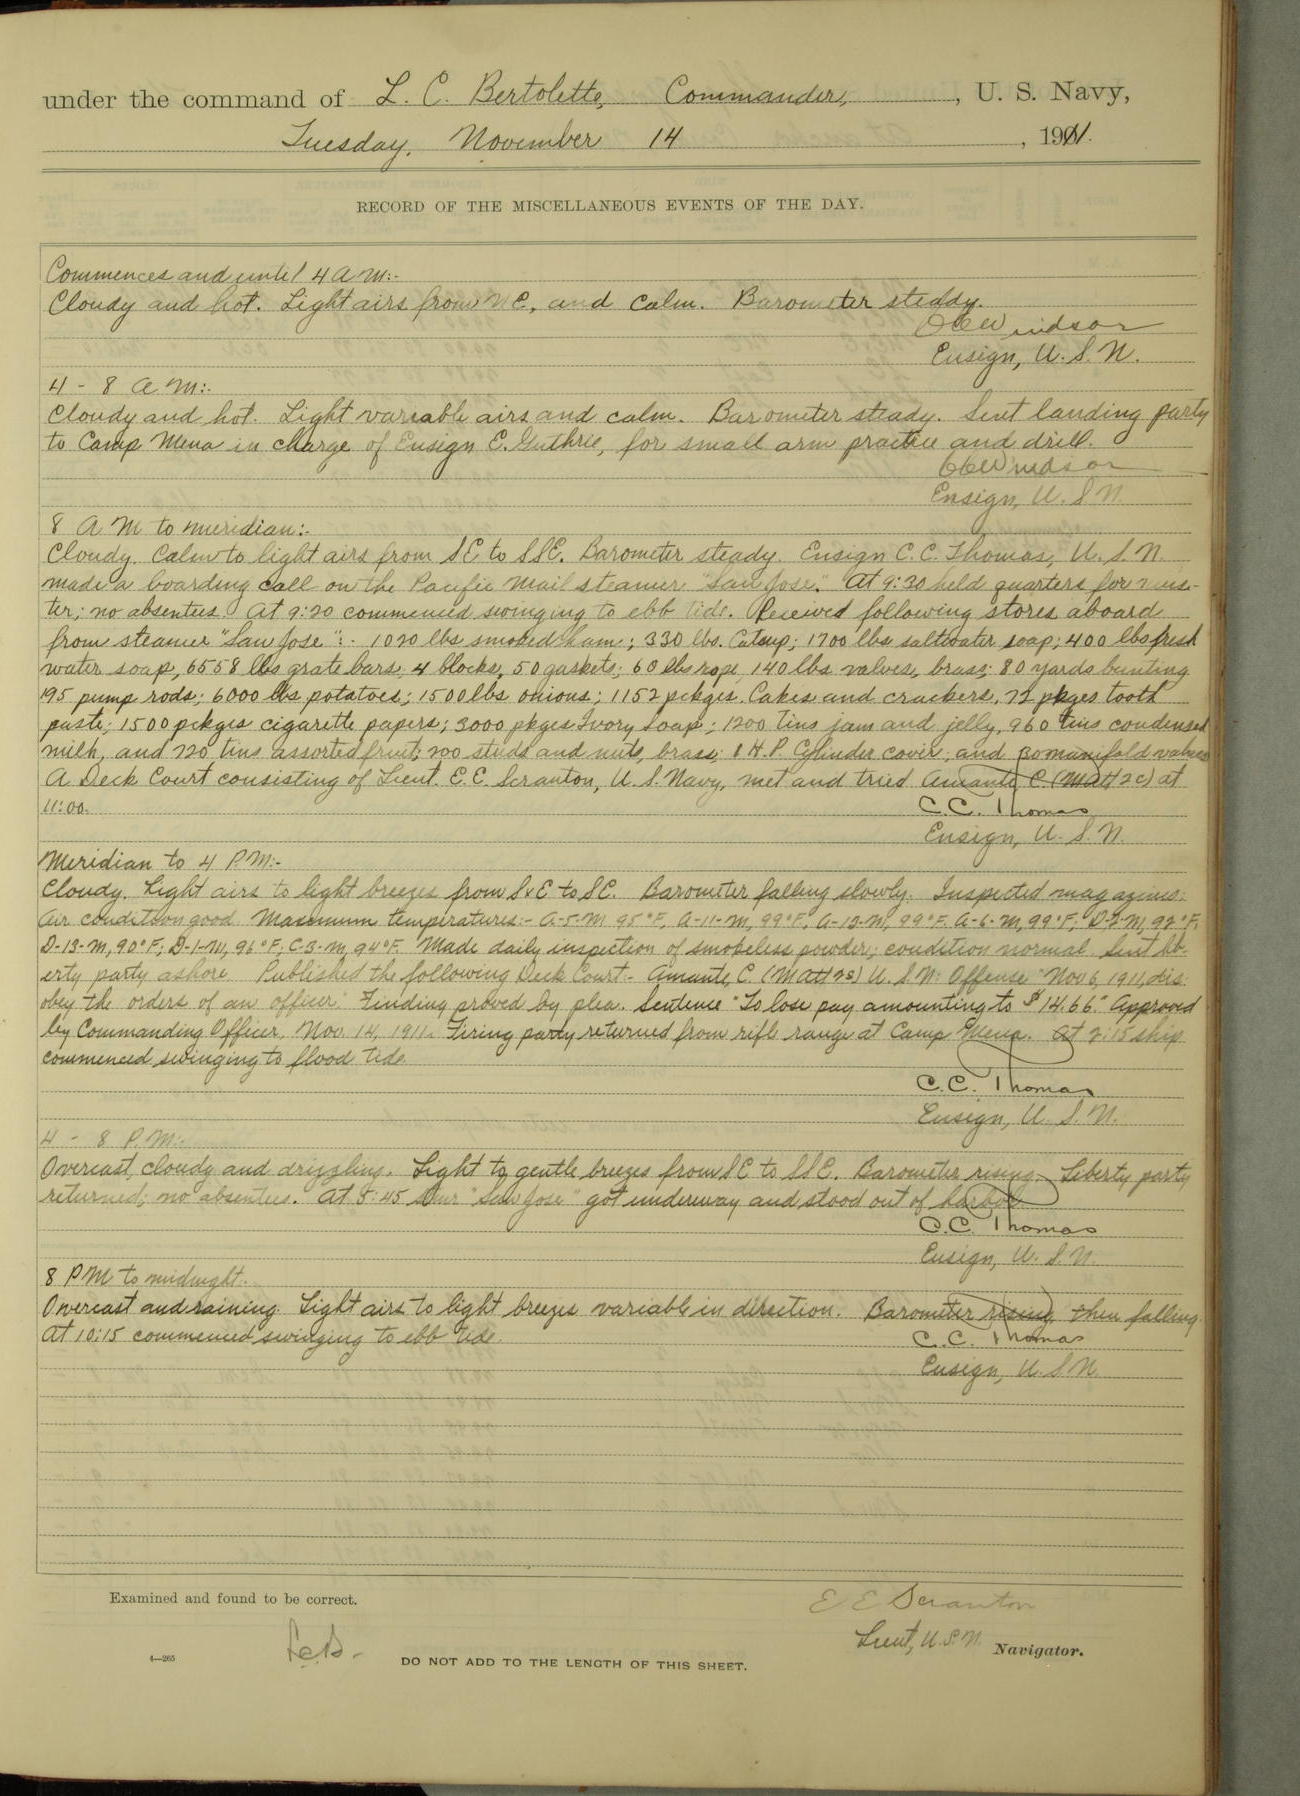 under the command of L. C. Bertolette, Commander, , U. S. Navy,
Tuesday, November 14 , 1911.
RECORD OF THE MISCELLANEOUS EVENTS OF THE DAY.
Commences and until 4 A M:-
Cloudy and hot. Light airs from NE, and calm. Barometer steady.
Windsor
Ensign, U. S. N.
4 - 8 A M:-
Cloudy and hot. Light variable airs and calm. Barometer steady. Sent landing party
to Camp Mena in charge of Ensign E. Guthrie, for small arm practice and drill.
Windsor
Ensign, U. S N.
8 A M to meridian:-
Cloudy. Calm to light airs from SE to SSE. Barometer steady. Ensign C. C. Thomas, U. S. N.
made a boarding call on the Pacific Mail steamer "San Jose." At 9:30 held quarters for mus-
ter; no absentees. At 9:20 commenced swinging to ebb tide. Received following stores aboard
from steamer "San Jose":- 1020 lbs smoked ham; 330 lbs. Catsup; 1700 lbs saltwater soap; 400 lbs fresh
water soap, 6558 lbs grate bars; 4 blocks, 50 gaskets; 60 lbs rope, 140 lbs valves, brass; 80 yards bunting
195 pump rods; 6000 lbs potatoes; 1500 lbs onions; 1152 pckges. Cakes and crackers, 72 pkges tooth
paste; 1500 pckges cigarette papers; 3000 pkges Ivory Soap; 1200 tins jam and jelly, 960 tins condensed
milk, and 720 tins assorted fruit; 200 studs and nuts, brass; 1 H. P. Cylinder cover; and 30 manifold valves
A Deck Court consisting of Lieut. E. E. Scranton, U. S. Navy, met and tried Amante C. (Matt 2c) at
11:00.
C. C. Thomas
Ensign, U. S. N.
Meridian to 4 P M:-
Cloudy. Light airs to light breezes from SxE to SE. Barometer falling slowly. Inspected magazines:
Air condition good. Maximum temperatures:- A-5-M 95°F, A-11-M, 99°F, A-13-M, 99°F. A-6-M, 99°F; D-2-M, 92°F,
D-13-M, 90°F; D-1-M, 96°F, C-3-M, 94°F. Made daily inspection of smokeless powder; condition normal. Sent lib-
erty party ashore. Published the following Deck Court:- Amante, C. (Matt 2c) U. S. N: Offense "Nov 6, 1911, dis-
obey the orders of an officer." Finding proved by plea. Sentence "To lose pay amounting to $ 14.66." Approved
by Commanding Officer, Nov. 14, 1911. Firing party returned from rifle range at Camp Mena. At 2:15 ship
commenced swinging to flood tide.
C. C. Thomas
Ensign, U. S. N.
4 - 8 P. M:-
Overcast, cloudy and drizzling. Light to gentle breezes from SE to SSE. Barometer rising. Liberty party
returned; no absentees. At 5:45 Stmr "San Jose" got underway and stood out of harbor.
C. C. Thomas
Ensign, U. S. N.
8 P M to midnight.
Overcast and raining. Light airs to light breezes variable in direction. Barometer rising, then falling.
At 10:15 commenced swinging to ebb tide.
C. C. Thomas
Ensign, U. S. N.
Examined and found to be correct.
E E Scranton
Lieut, U. S. N. Navigator.
L C B.
4—265
DO NOT ADD TO THE LENGTH OF THIS SHEET.